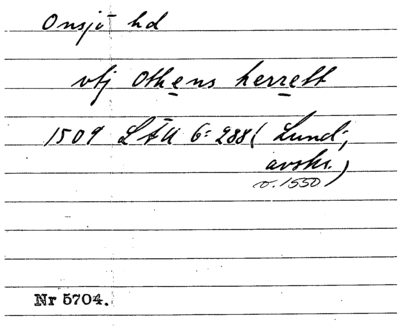 Onsjö hd
utj Othens herrett
1509 LÄU 6:288 (Lund;
avskr.
o. 1550)
Nr 5704.